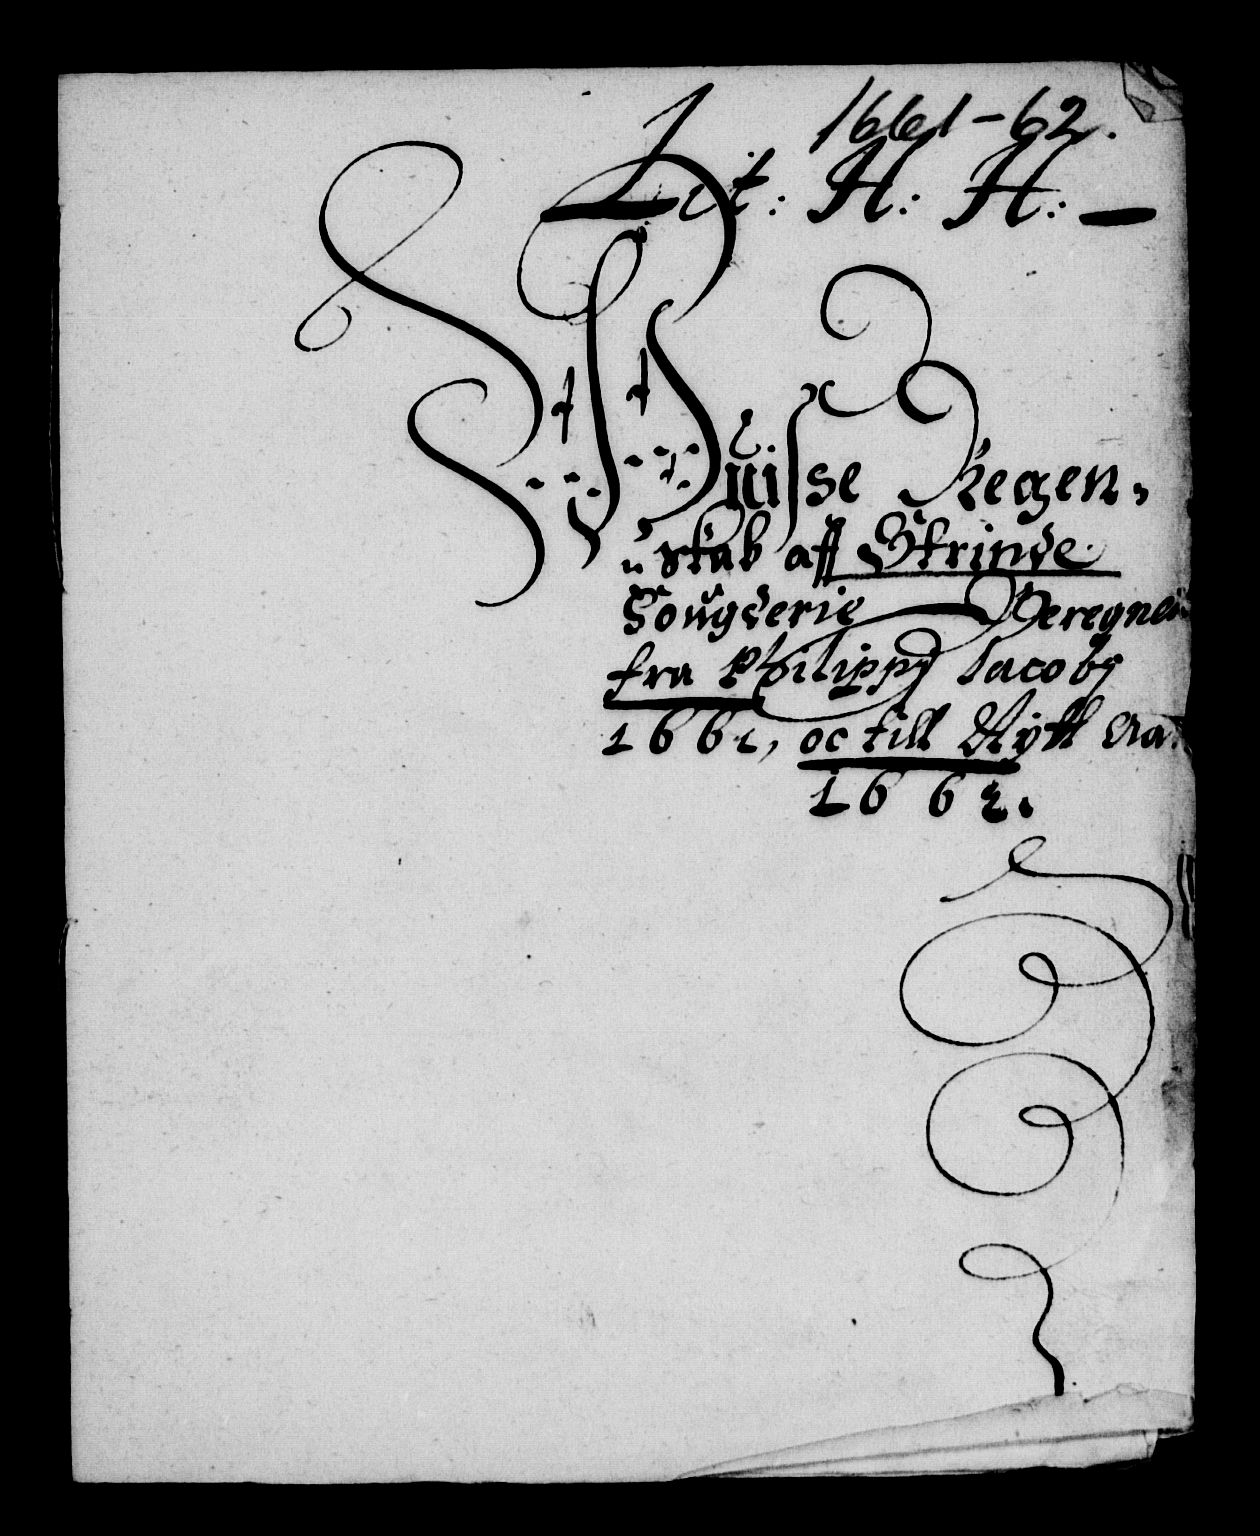 1661-62.
Lit: H: H:
Wisse Regen-
skab aff Strinde
Fougderie Beregnet
fra Philippj Jacobj
1661, oc till Nytt Aar
1662.